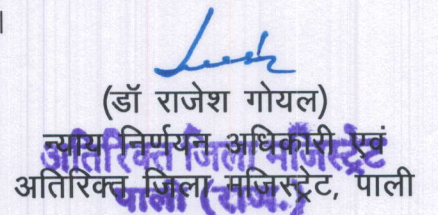 ।
(डॉ राजेश गोयल)
न्याय निर्णयन अधिकारी एवं
अतिरिक्त जिला मजिस्ट्रेट
अतिरिक्त जिला मजिस्ट्रेट, पाली
पाली (राज.)